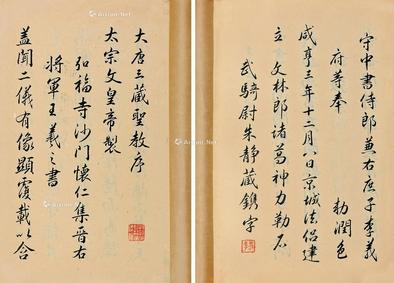 大唐三藏聖教序
太宗文皇帝製
弘福寺沙門懷仁集晉右
將軍王羲之書
蓋聞二儀有像顯覆載以含
守中書侍郎兼右庶子李義
府等奉 勅潤色
咸亨三年十二月八日京城法侶建
立 文林郎諸葛神力勒石
武騎尉朱靜藏鐫字